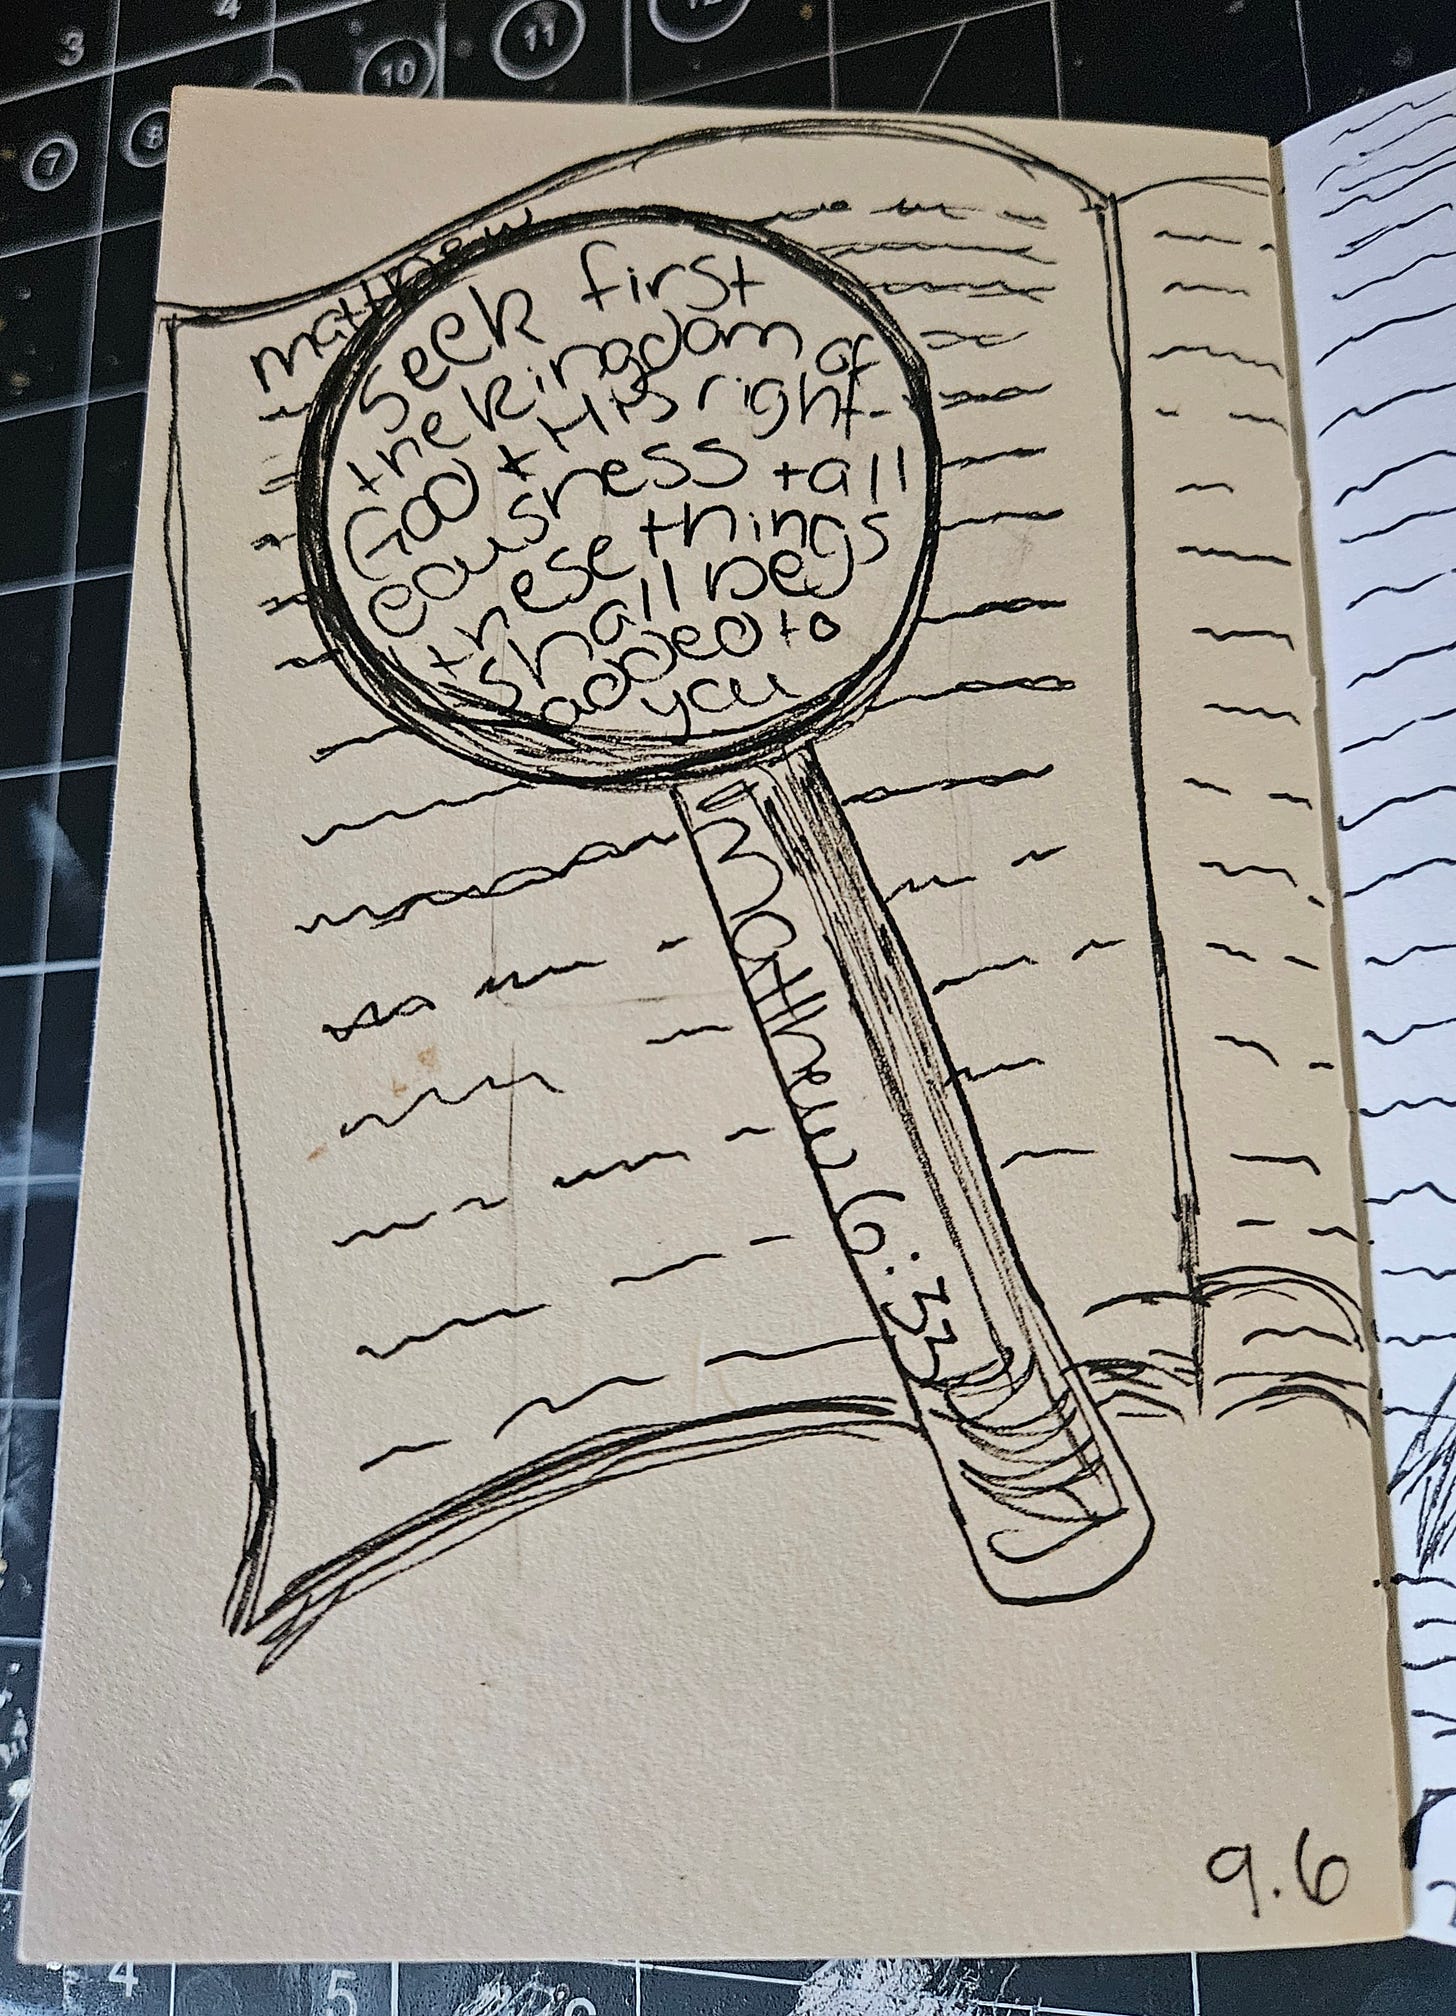 3
4
7
8
10
11
12
matthew
seek first
the kingdom of
GOD + HIS right-
eousness + all
these things
shall be
added to
you
Matthew 6:33
9.6
4
5